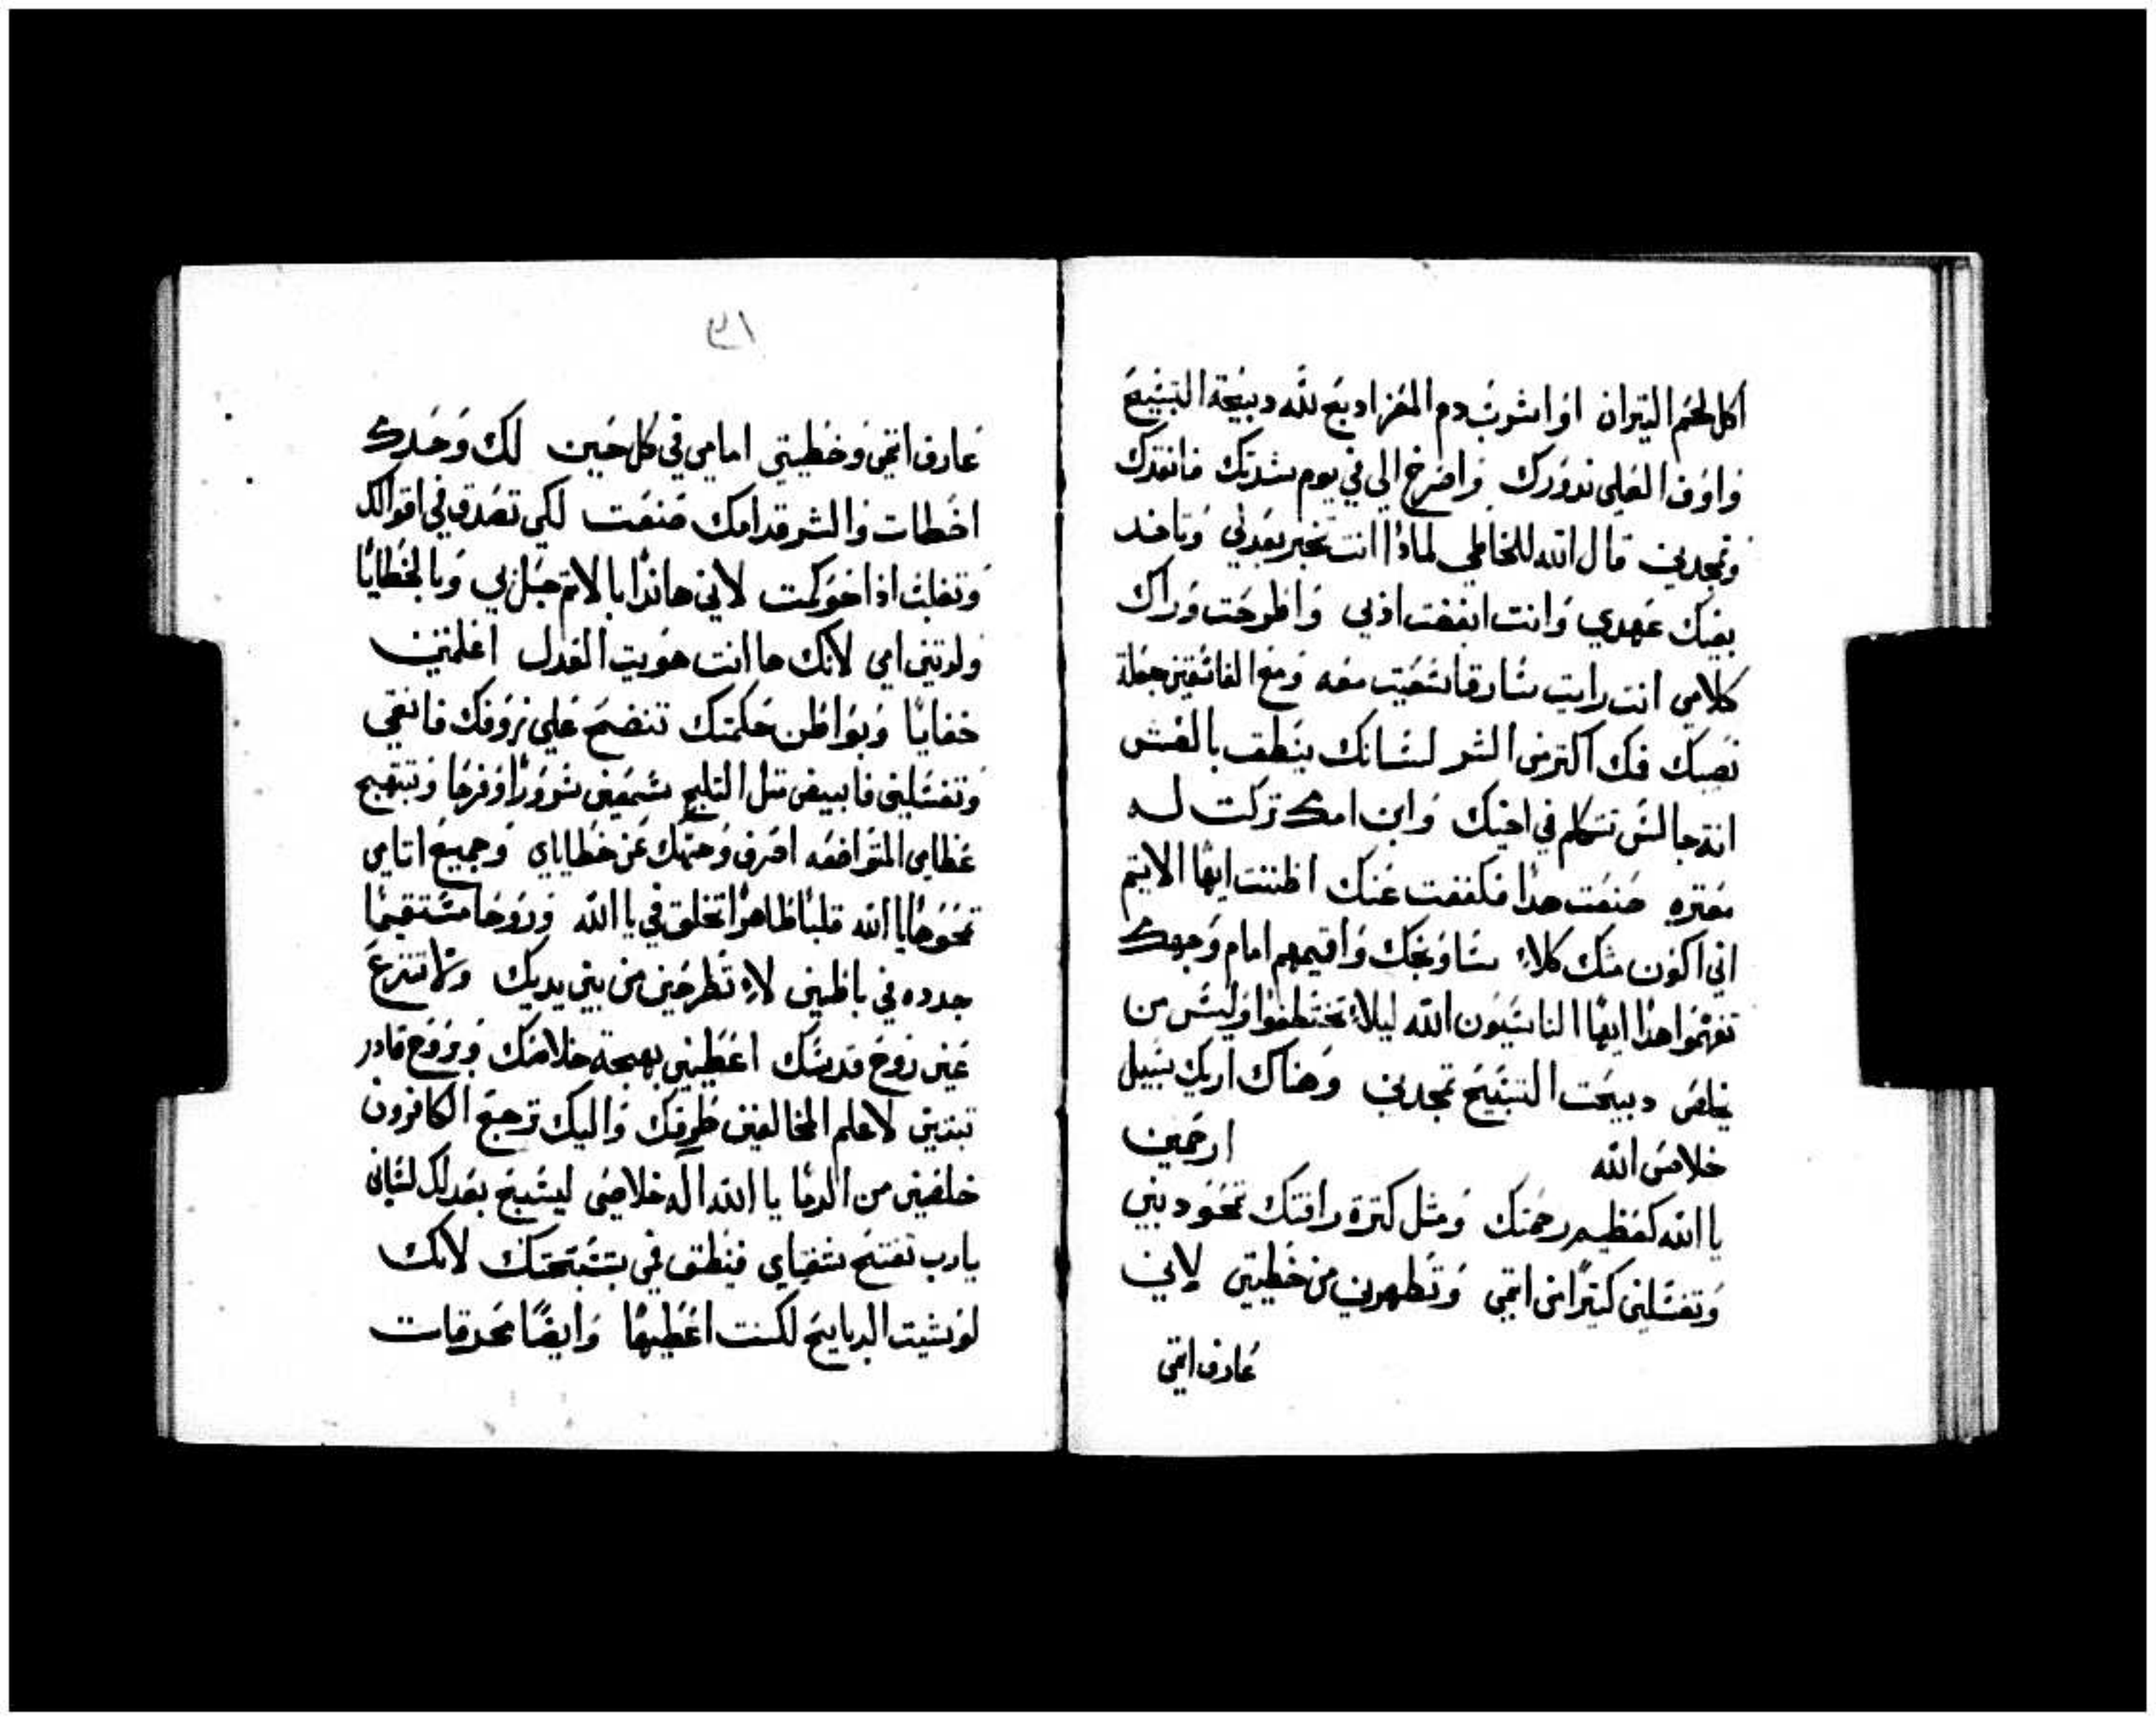 اكل لحم التيران او اشرب دم المعز ادبح لله دبيحة التسبيح
واوف العلي ندورك واصرخ الي في يوم شدتك فانقدك
وتمجدني قال الله للخاطي لمادا انت تخبر بعدلي وتاخد
بفيك عهدي وانت ابغضت ادبي واطرحت وراك
كلامي انت رايت سارقا سعيت معه ومع الفاسقين جعلت
نصيبك فمك اكتر من الشر لسانك ينطق بالغش
انت جالس تتكلم في اخيك وابن امك تركت له
معتره صنعت هدا فكففت عنك اظننت ايها الاتيم
اني اكون متلك كلا ساوبخك واقيمهم امام وجهك
تفهموا هدا ايها الناسيون الله ليلا تختطفوا وليس من
يخلص دبيحت التسبيح تمجدني وهناك اريك سبيل
خلاص الله ارحمني
يا الله كعظيم رحمتك ومتل كترة رافتك تمحو دنبي
وتغسلني كتيرا من اتمي وتطهرني من خطيتي لاني
عارف اتمي
٣١
عارف اتمي وخطيتي امامي في كل حين لك وحدك
اخطات والشر قدامك صنعت لكي تصدق في اقوالك
وتغلب ادا حوكمت لاني هاندا بالاتم حبل بي وبالخطايا
ولدتني امي لانك ها انت هويت العدل اعلمتني
خفايا وبواطن حكمتك تنضح علي بزوفك فانقي
وتغسلني فابيض متل التلج تسمعني سرورا وفرحا وتبتهج
عظامي المتواضعه اصرف وجهك عن خطاياي وجميع اتامي
تمحوها يا الله قلبا طاهرا تخلق في يا الله وروحا مستقيما
جدده في باطني لا تطرحني من بين يديك ولا تنزع
عني روح قدسك اعطيني بهجة خلاصك وبروح قادر
تبتني لاعلم المخالفين طرقك واليك ترجع الكافرون
خلصني من الدما يا الله اله خلاصي ليسبح بعدلك لساني
يارب تفتح شفتاي فينطق فمي بتسبحتك لانك
لو شيت الدبايح لكنت اعطيها وايضا محرقات